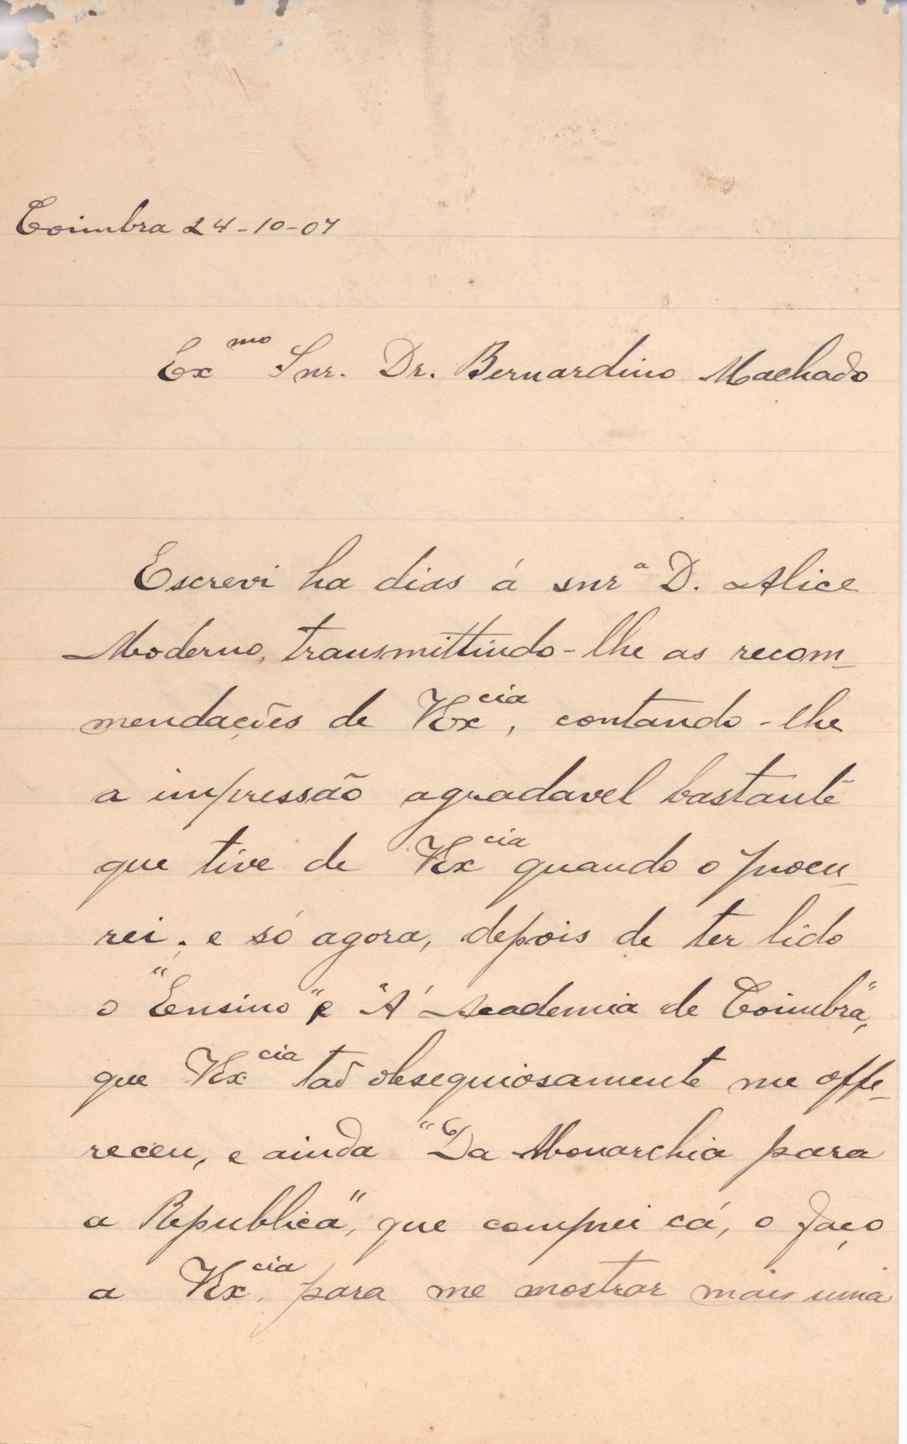 Coimbra 24-10-07
Ex.mo Snr. Dr. Bernardino Machado
Escrevi ha dias á snrª D. Alice
Moderno, transmittindo-lhe as recom-
mendações de VEx.cia, contando-lhe
a impressão agradavel bastante
que tive de VEx.cia quando o procu-
rei; e só agora, depois de ter lido
o "Ensino" e "A' Academia de Coimbra",
que VEx.cia taõ obsequiosamente me offe-
receu, e ainda "Da Monarchia para
a Republica", que comprei cá, o faço
a VEx.cia, para me mostrar mais uma